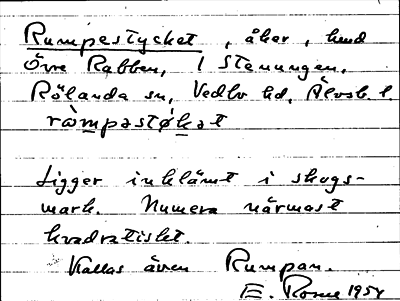 Rumpestycket, åker, hmd
Övre Rabben, 1 Stenungen,
Rölanda sn, Vedbo hd, Älvsb. l.
ràmpəstø̀kət
Ligger inklämt i skogs-
mark. Numera närmast
kvadratiskt.
Kallas även Rumpan.
E. 1954